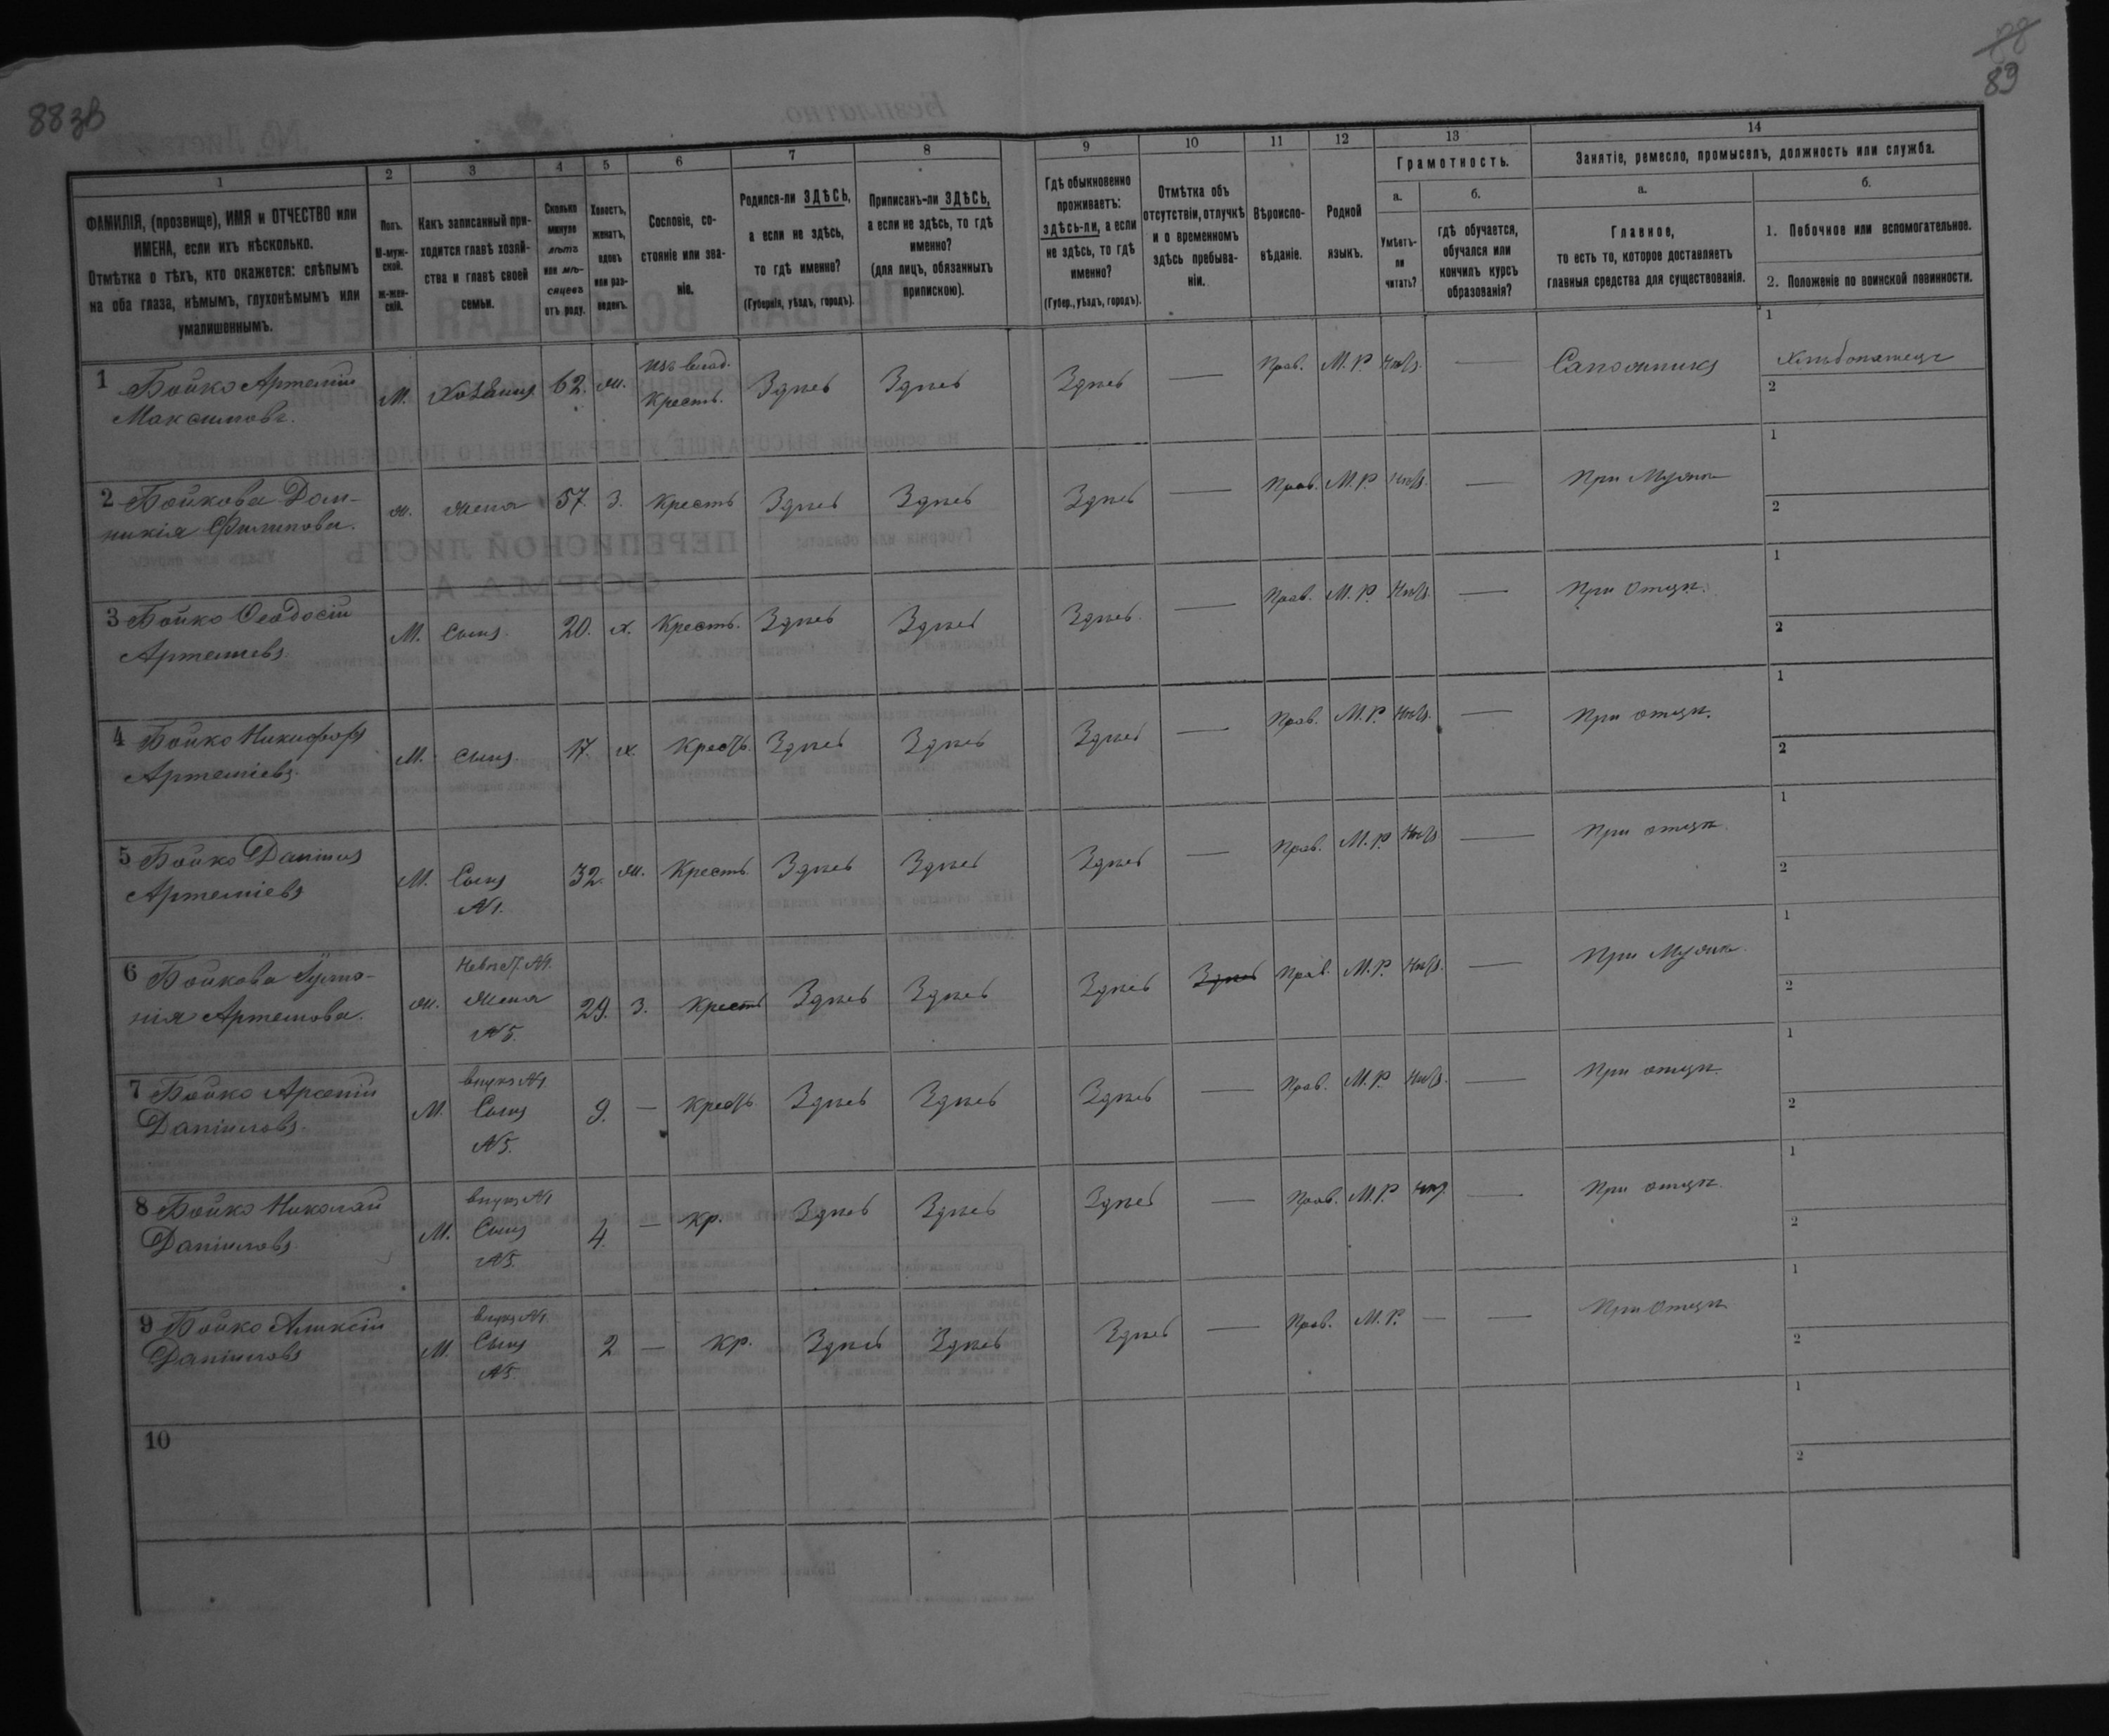 88 зв
88
89
1
2
3
4
5
6
7
8
9
10
11
12
13
14
ФАМИЛІЯ, (прозвище), ИМЯ и ОТЧЕСТВО или
ИМЕНА, если ихъ нѣсколько.
Отмѣтка о тѣхъ, кто окажется: слѣпымъ
на оба глаза, нѣмымъ, глухонѣмымъ или
умалишеннымъ.
Полъ.
М-муж-
ской.
Ж-жен-
скій.
Какъ записанный при-
ходится главѣ хозяй-
ства и главѣ своей
семьи.
Сколько
минуло
лѣтъ
или мѣ-
сяцевъ
отъ роду.
Холостъ,
женатъ,
вдовъ
или раз-
веденъ.
Сословіе, со-
стояніе или зва-
ніе.
Родился-ли ЗДѢСЬ,
а если не здѣсь,
то гдѣ именно?
(Губернія, уѣздъ, городъ).
Приписанъ-ли ЗДѢСЬ,
а если не здѣсь, то гдѣ
именно?
(для лицъ, обязанныхъ
припискою).
Гдѣ обыкновенно
проживаетъ:
здѣсь-ли, а если
не здѣсь, то гдѣ
именно?
(Губер., уѣздъ, городъ).
Отмѣтка объ
отсутствіи, отлучкѣ
и о временномъ
здѣсь пребыва-
ніи.
Вѣроиспо-
вѣданіе.
Родной
языкъ.
Грамотность.
а.
Умѣетъ-
ли
читать?
б.
гдѣ обучается,
обучался или
кончилъ курсъ
образованія?
Занятіе, ремесло, промыселъ, должность или служба.
а.
Главное,
то есть то, которое доставляетъ
главныя средства для существованія.
б.
1. Побочное или вспомогательное.
2. Положеніе по воинской повинности.
1 Бойко Артемій
Максимовъ.
М. Хозяинъ 62. ж. Изъ влад. Крестъ. Здѣсь Здѣсь Здѣсь — Прав. М. Р. Нѣтъ. — Сапожникъ
1 Хлѣбопашецъ
2
2 Бойкова Дом-
никія Филипова.
ж. жена 57. з. Крестъ Здѣсь Здѣсь Здѣсь — Прав. М. Р. Нѣтъ. — При Мужѣ
1
2
3 Бойко Ѳеодосій
Артемиевъ.
М. Сынъ. 20. х. Крестъ. Здѣсь Здѣсь Здѣсь. — Прав. М. Р. Нѣтъ. — При Отцѣ.
1
2
4 Бойко Никифоръ
Артеміевъ.
М. Сынъ. 17. х. Крестъ. Здѣсь Здѣсь Здѣсь — Прав. М. Р. Нѣтъ. — При отцѣ.
1
2
5 Бойко Даніилъ
Артеміевъ
М. Сынъ №1. 32. ж. Крестъ. Здѣсь Здѣсь Здѣсь — Прав. М. Р. Нѣтъ — При отцѣ.
1
2
6 Бойкова
Артемова.
ж. Невѣст. №1. Жена №5. 29. з. Крестъ Здѣсь Здѣсь Здѣсь Здѣсь Прав. М. Р. Нѣтъ. — При Мужѣ.
1
2
7 Бойко Арсеній
Даніиловъ.
М. внукъ №1 Сынъ №5. 9. — Крестъ. Здѣсь Здѣсь Здѣсь — Прав. М. Р. Нѣтъ. — При отцѣ.
1
2
8 Бойко Николай
Даніиловъ.
М. внукъ №1 Сынъ №5. 4. — Кр. Здѣсь Здѣсь Здѣсь — Прав. М. Р. Нѣтъ. — При отцѣ.
1
2
9 Бойко Алексій
Даніиловъ
М. внукъ №1. Сынъ №5. 2 — Кр. Здѣсь Здѣсь Здѣсь — Прав. М. Р. — — При Отцѣ
1
2
10
1
2